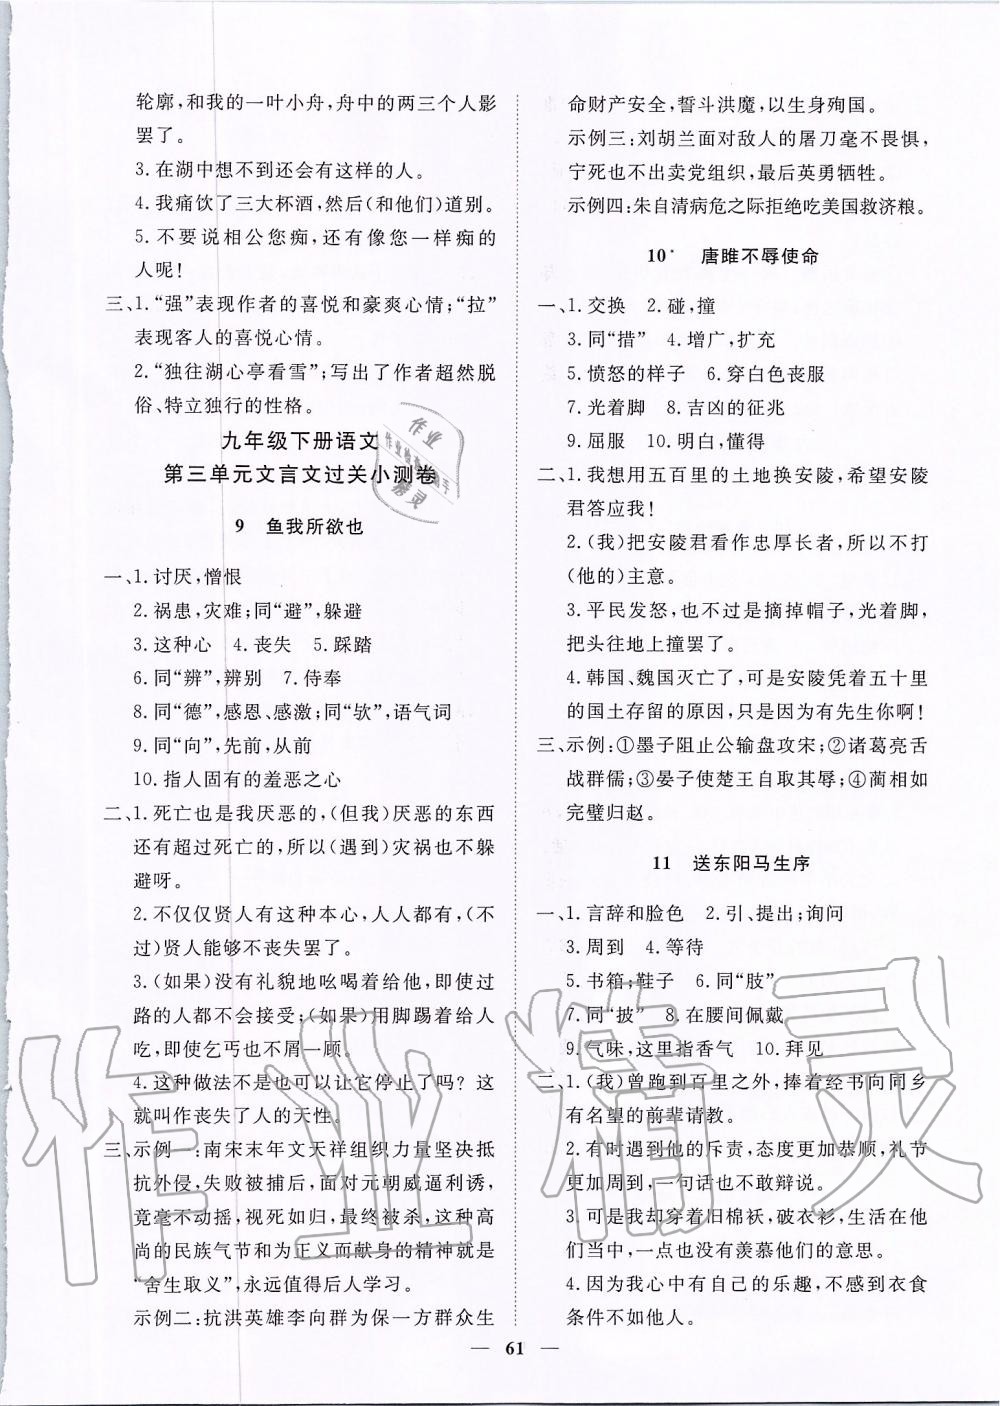 轮廓,和我的一叶小舟,舟中的两三个人影
罢了。
3.在湖中想不到还会有这样的人。
4.我痛饮了三大杯酒,然后(和他们)道别。
5.不要说相公您痴,还有像您一样痴的
人呢!
三、1.“强”表现作者的喜悦和豪爽心情;“拉”
表现客人的喜悦心情。
2.“独往湖心亭看雪”;写出了作者超然脱
俗、特立独行的性格。
九年级下册语文
第三单元文言文过关小测卷
9 鱼我所欲也
一、1.讨厌,憎恨
2.祸患,灾难;同“避”,躲避
3.这种心 4.丧失 5.踩踏
6.同“辨”,辨别 7.侍奉
8.同“德”,感恩、感激;同“欤”,语气词
9.同“向”,先前,从前
10.指人固有的羞恶之心
二、1.死亡也是我厌恶的,(但我)厌恶的东西
还有超过死亡的,所以(遇到)灾祸也不躲
避呀。
2.不仅仅贤人有这种本心,人人都有,(不
过)贤人能够不丧失罢了。
3.(如果)没有礼貌地吆喝着给他,即使过
路的人都不会接受;(如果)用脚踢着给人
吃,即使乞丐也不屑一顾。
4.这种做法不是也可以让它停止了吗?这
就叫作丧失了人的天性。
三、示例一:南宋末年文天祥组织力量坚决抵
抗外侵,失败被捕后,面对元朝威逼利诱,
竟毫不动摇,视死如归,最终被杀,这种高
尚的民族气节和为正义而献身的精神就是
“舍生取义”,永远值得后人学习。
示例二:抗洪英雄李向群为保一方群众生
命财产安全,誓斗洪魔,以生身殉国。
示例三:刘胡兰面对敌人的屠刀毫不畏惧,
宁死也不出卖党组织,最后英勇牺牲。
示例四:朱自清病危之际拒绝吃美国救济粮。
10* 唐雎不辱使命
一、1.交换 2.碰,撞
3.同“措” 4.增广,扩充
5.愤怒的样子 6.穿白色丧服
7.光着脚 8.吉凶的征兆
9.屈服 10.明白,懂得
二、1.我想用五百里的土地换安陵,希望安陵
君答应我!
2.(我)把安陵君看作忠厚长者,所以不打
(他的)主意。
3.平民发怒,也不过是摘掉帽子,光着脚,
把头往地上撞罢了。
4.韩国、魏国灭亡了,可是安陵凭着五十里
的国土存留的原因,只是因为有先生你啊!
三、示例:①墨子阻止公输盘攻宋;②诸葛亮舌
战群儒;③晏子使楚王自取其辱;④蔺相如
完璧归赵。
11 送东阳马生序
一、1.言辞和脸色 2.引、提出;询问
3.周到 4.等待
5.书箱;鞋子 6.同“肢”
7.同“披” 8.在腰间佩戴
9.气味,这里指香气 10.拜见
二、1.(我)曾跑到百里之外,捧着经书向同乡
有名望的前辈请教。
2.有时遇到他的斥责,态度更加恭顺,礼节
更加周到,一句话也不敢辩说。
3.可是我却穿着旧棉袄,破衣衫,生活在他
们当中,一点也没有羡慕他们的意思。
4.因为我心中有自己的乐趣,不感到衣食
条件不如他人。
— 61 —
作业精灵